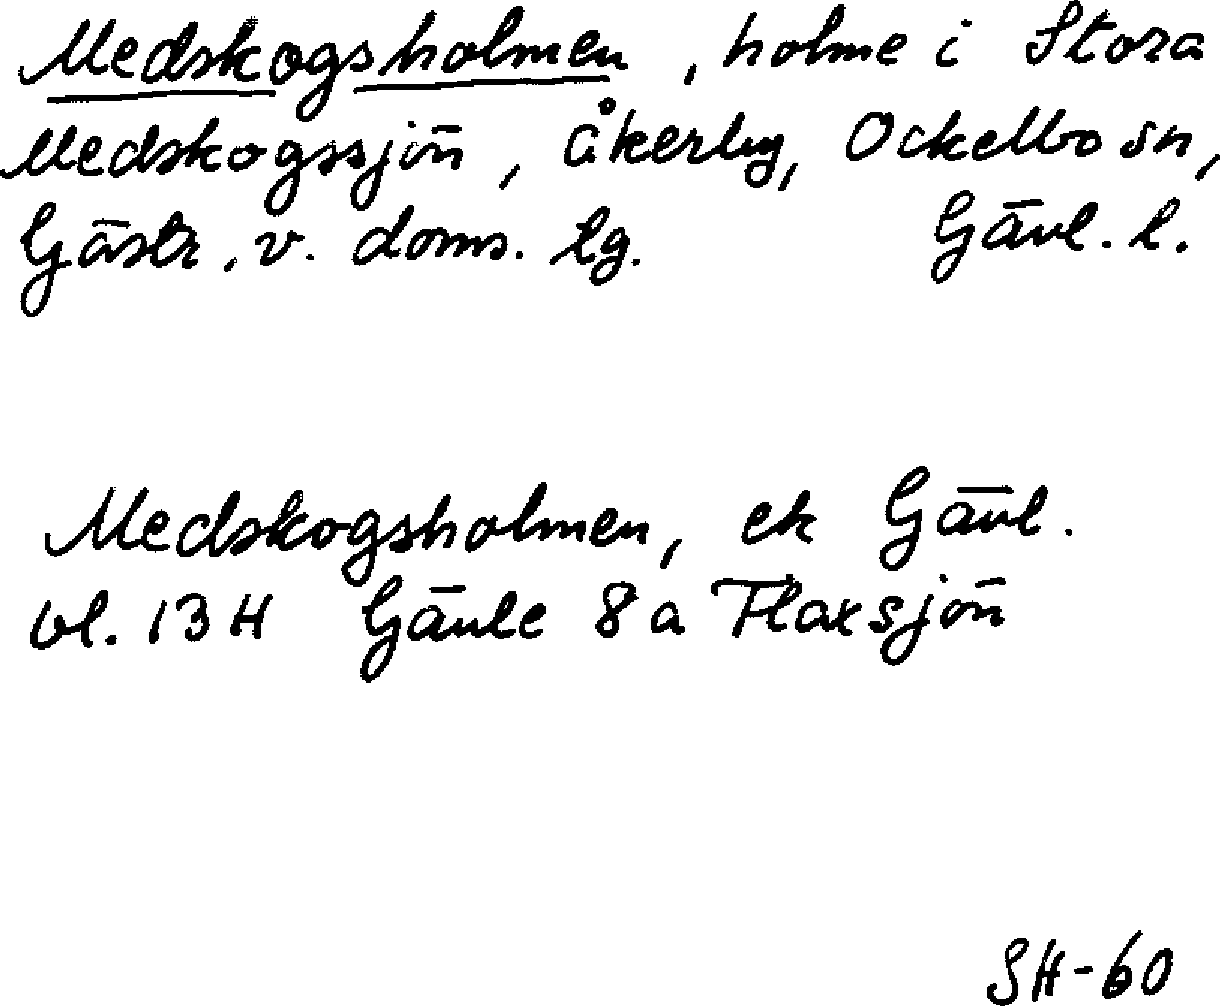 Medskogsholmen, holme i Stora
Medskogssjön, Åkerby, Ockelbo sn,
Gästr. v. doms. tg. Gävl. l.
Medskogsholmen, ek Gävl.
bl. 13H Gävle 8a Flaxsjön
SH-60